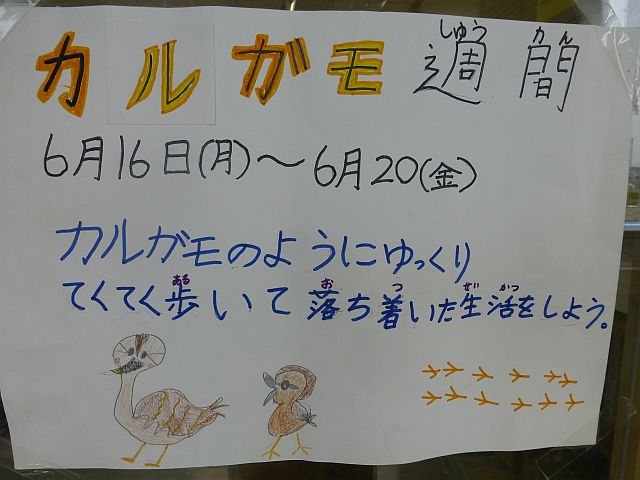 カルガモ週間
しゅう かん
6月16日(月)～6月20(金)
カルガモのようにゆっくり
ある お つ ぜい かつ
てくてく歩いて落ち着いた生活をしよう。